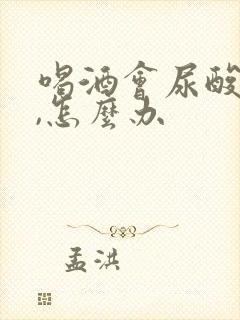 喝酒會尿酸
,怎麼办
孟洪